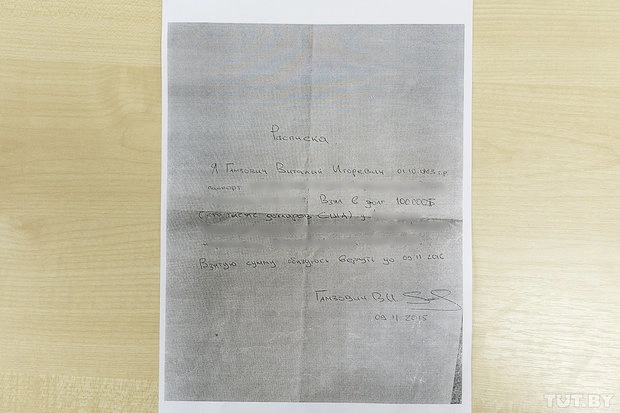 Расписка
Я Гамзович Виталий Игоревич 01.10.1983 г.р
паспорт
Взял в долг 100 000$
(сто тысяч долларов США) у
Взятую сумму обязуюсь вернуть до 09 11 2016
Гамзович В И
09 11 2015
TUT.BY